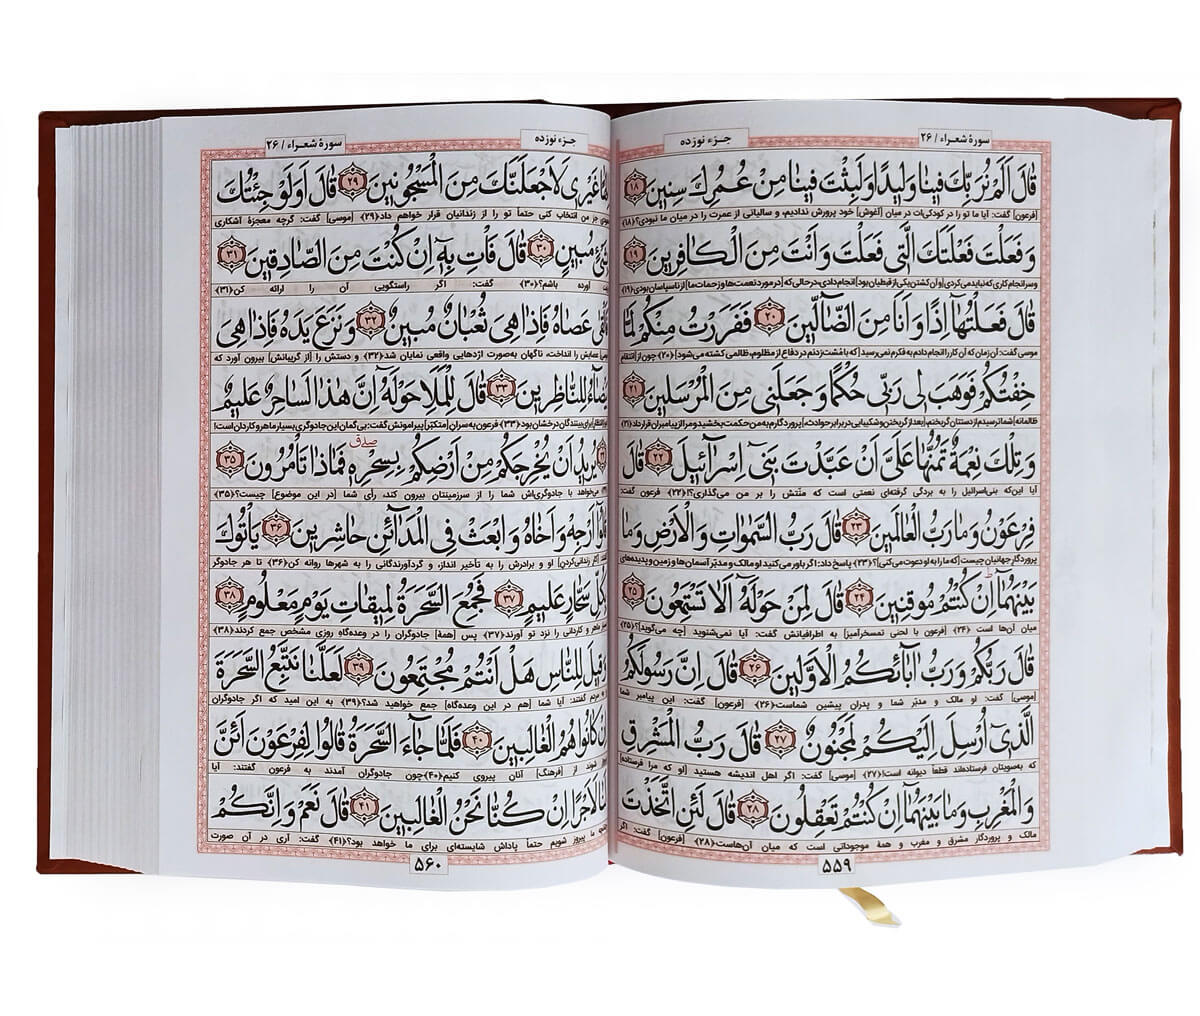 سورهٔ شعراء / ۲۶
جزء نوزده
قَالَ أَلَمْ نُرَبِّكَ فِينَا وَلِيدًا وَلَبِثْتَ فِينَا مِنْ عُمُرِكَ سِنِينَ ﴿۱۸﴾
[فرعون] گفت: آیا ما تو را در کودکی‌ات در میان [آغوش] خود پرورش ندادیم، و سالیانی از عمرت را در میان ما نبودی؟﴿۱۸﴾
وَفَعَلْتَ فَعْلَتَكَ الَّتِي فَعَلْتَ وَأَنْتَ مِنَ الْكَافِرِينَ ﴿۱۹﴾
و سرانجام کاری که نباید می‌کردی [و آن کشتن یکی از قبطیان بود] انجام دادی، در حالی که [در مورد نعمت‌ها و زحمات ما] از ناسپاسان بودی﴿۱۹﴾
قَالَ فَعَلْتُهَا إِذًا وَأَنَا مِنَ الضَّالِّينَ ﴿۲۰﴾ فَفَرَرْتُ مِنْكُمْ لَمَّا
موسی گفت: آن زمان که آن کار را انجام دادم به فکرم نمی‌رسید [که با مُشت زدنم در دفاع از مظلوم، ظالمی کشته می‌شود]﴿۲۰﴾ چون از انتقام
خِفْتُكُمْ فَوَهَبَ لِي رَبِّي حُكْمًا وَجَعَلَنِي مِنَ الْمُرْسَلِينَ ﴿۲۱﴾
ظالمانهٔ شما ترسیدم از دستتان گریختم، [بعد از گریختن و شکیبایی در برابر حوادث،] پروردگارم به من حکمت بخشید و مرا از پیامبران قرار داد﴿۲۱﴾
وَتِلْكَ نِعْمَةٌ تَمُنُّهَا عَلَيَّ أَنْ عَبَّدْتَ بَنِي إِسْرَائِيلَ ﴿۲۲﴾ قَالَ
آیا این‌که بنی‌اسرائیل را به بردگی گرفته‌ای نعمتی است که منّتش را بر من می‌گذاری؟!﴿۲۲﴾ فرعون گفت:
فِرْعَوْنُ وَمَا رَبُّ الْعَالَمِينَ ﴿۲۳﴾ قَالَ رَبُّ السَّمٰوَاتِ وَالْأَرْضِ وَمَا
پروردگار جهانیان چیست [که ما را به او دعوت می‌کنی]؟﴿۲۳﴾ پاسخ داد: اگر باور می‌کنید او مالک و مدبّر آسمان‌ها و زمین و پدیده‌های
بَيْنَهُمَا إِنْ كُنْتُمْ مُوقِنِينَ ﴿۲۴﴾ قَالَ لِمَنْ حَوْلَهُ أَلَا تَسْتَمِعُونَ ﴿۲۵﴾
میان آن‌ها است ﴿۲۴﴾ [فرعون با لحنی تمسخرآمیز] به اطرافیانش گفت: آیا نمی‌شنوید [چه می‌گوید]؟﴿۲۵﴾
قَالَ رَبُّكُمْ وَرَبُّ آبَائِكُمُ الْأَوَّلِينَ ﴿۲۶﴾ قَالَ إِنَّ رَسُولَكُمُ
[موسی] گفت: او مالک و مدبّر شما و پدران پیشین شماست﴿۲۶﴾ [فرعون] گفت: این پیامبر شما
الَّذِي أُرْسِلَ إِلَيْكُمْ لَمَجْنُونٌ ﴿۲۷﴾ قَالَ رَبُّ الْمَشْرِقِ
که به‌سویتان فرستاده‌اند قطعاً دیوانه است!﴿۲۷﴾ [موسی] گفت: اگر اهل اندیشه هستید [او که مرا فرستاده]
وَالْمَغْرِبِ وَمَا بَيْنَهُمَا إِنْ كُنْتُمْ تَعْقِلُونَ ﴿۲۸﴾ قَالَ لَئِنِ اتَّخَذْتَ
مالک و پروردگار مشرق و مغرب و همهٔ موجوداتی است که میان آن‌هاست﴿۲۸﴾ [فرعون] گفت: اگر
۵۵۹
جزء نوزده
سورهٔ شعراء / ۲۶
غَيْرِي لَأَجْعَلَنَّكَ مِنَ الْمَسْجُونِينَ ﴿۲۹﴾ قَالَ أَوَلَوْ جِئْتُكَ
جز من انتخاب کنی حتماً تو را از زندانیان قرار خواهم داد﴿۲۹﴾ [موسی] گفت: گرچه معجزهٔ آشکاری
مُبِينٍ ﴿۳۰﴾ قَالَ فَأْتِ بِهِ إِنْ كُنْتَ مِنَ الصَّادِقِينَ ﴿۳۱﴾
آورده باشم؟﴿۳۰﴾ گفت: اگر راستگویی آن را ارائه کن﴿۳۱﴾
عَصَاهُ فَإِذَا هِيَ ثُعْبَانٌ مُبِينٌ ﴿۳۲﴾ وَنَزَعَ يَدَهُ فَإِذَا هِيَ
عصایش را انداخت، ناگهان به‌صورت اژدهایی واقعی نمایان شد﴿۳۲﴾ و دستش را [از گریبانش] بیرون آورد که
لِلنَّاظِرِينَ ﴿۳۳﴾ قَالَ لِلْمَلَإِ حَوْلَهُ إِنَّ هٰذَا لَسَاحِرٌ عَلِيمٌ
برای بینندگان درخشان بود﴿۳۳﴾ فرعون به سران [متکبّر] پیرامونش گفت: بی‌گمان این جادوگری بسیار ماهر و کاردان است!
يُرِيدُ أَنْ يُخْرِجَكُمْ مِنْ أَرْضِكُمْ بِسِحْرِهِ فَمَاذَا تَأْمُرُونَ ﴿۳۵﴾
می‌خواهد با جادوگری‌اش شما را از سرزمینتان بیرون کند، رأی شما [در این موضوع] چیست؟﴿۳۵﴾
أَرْجِهْ وَأَخَاهُ وَابْعَثْ فِي الْمَدَائِنِ حَاشِرِينَ ﴿۳۶﴾ يَأْتُوكَ
او و برادرش را به تأخیر انداز، و گردآورندگانی را به شهرها روانه کن﴿۳۶﴾ تا هر جادوگر
سَحَّارٍ عَلِيمٍ ﴿۳۷﴾ فَجُمِعَ السَّحَرَةُ لِمِيقَاتِ يَوْمٍ مَعْلُومٍ ﴿۳۸﴾
ماهر و کاردانی را نزد تو آورند﴿۳۷﴾ پس [همهٔ] جادوگران را در وعده‌گاهِ روزی مشخص جمع کردند﴿۳۸﴾
لِلنَّاسِ هَلْ أَنْتُمْ مُجْتَمِعُونَ ﴿۳۹﴾ لَعَلَّنَا نَتَّبِعُ السَّحَرَةَ
مردم گفتند: آیا شما [هم در این وعده‌گاه] جمع خواهید شد؟﴿۳۹﴾ به این امید که اگر جادوگران
كَانُوا هُمُ الْغَالِبِينَ ﴿۴۰﴾ فَلَمَّا جَاءَ السَّحَرَةُ قَالُوا لِفِرْعَوْنَ أَئِنَّ
شوند از [فرهنگ] آنان پیروی کنیم﴿۴۰﴾ چون جادوگران آمدند به فرعون گفتند: آیا
لَأَجْرًا إِنْ كُنَّا نَحْنُ الْغَالِبِينَ ﴿۴۱﴾ قَالَ نَعَمْ وَإِنَّكُمْ
پیروز شویم حتماً پاداش شایسته‌ای برای ما خواهد بود؟﴿۴۱﴾ گفت: آری در آن صورت
۵۶۰